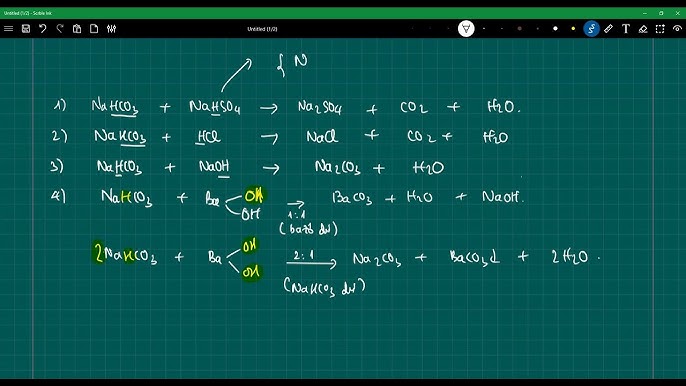 Untitled (1/2) - Scrble Ink
Untitled (1/2)
{ N
1) NaHCO3 + NaHSO4 → Na2SO4 + CO2 + H2O.
2) NaHCO3 + HCl → NaCl + CO2 + H2O
3) NaHCO3 + NaOH → Na2CO3 + H2O
4) NaHCO3 + Ba OH OH 1:1 → BaCO3 + H2O + NaOH.
(bazơ dư)
2NaHCO3 + Ba OH OH 2:1 → Na2CO3 + BaCO3↓ + 2H2O.
(NaHCO3 dư)